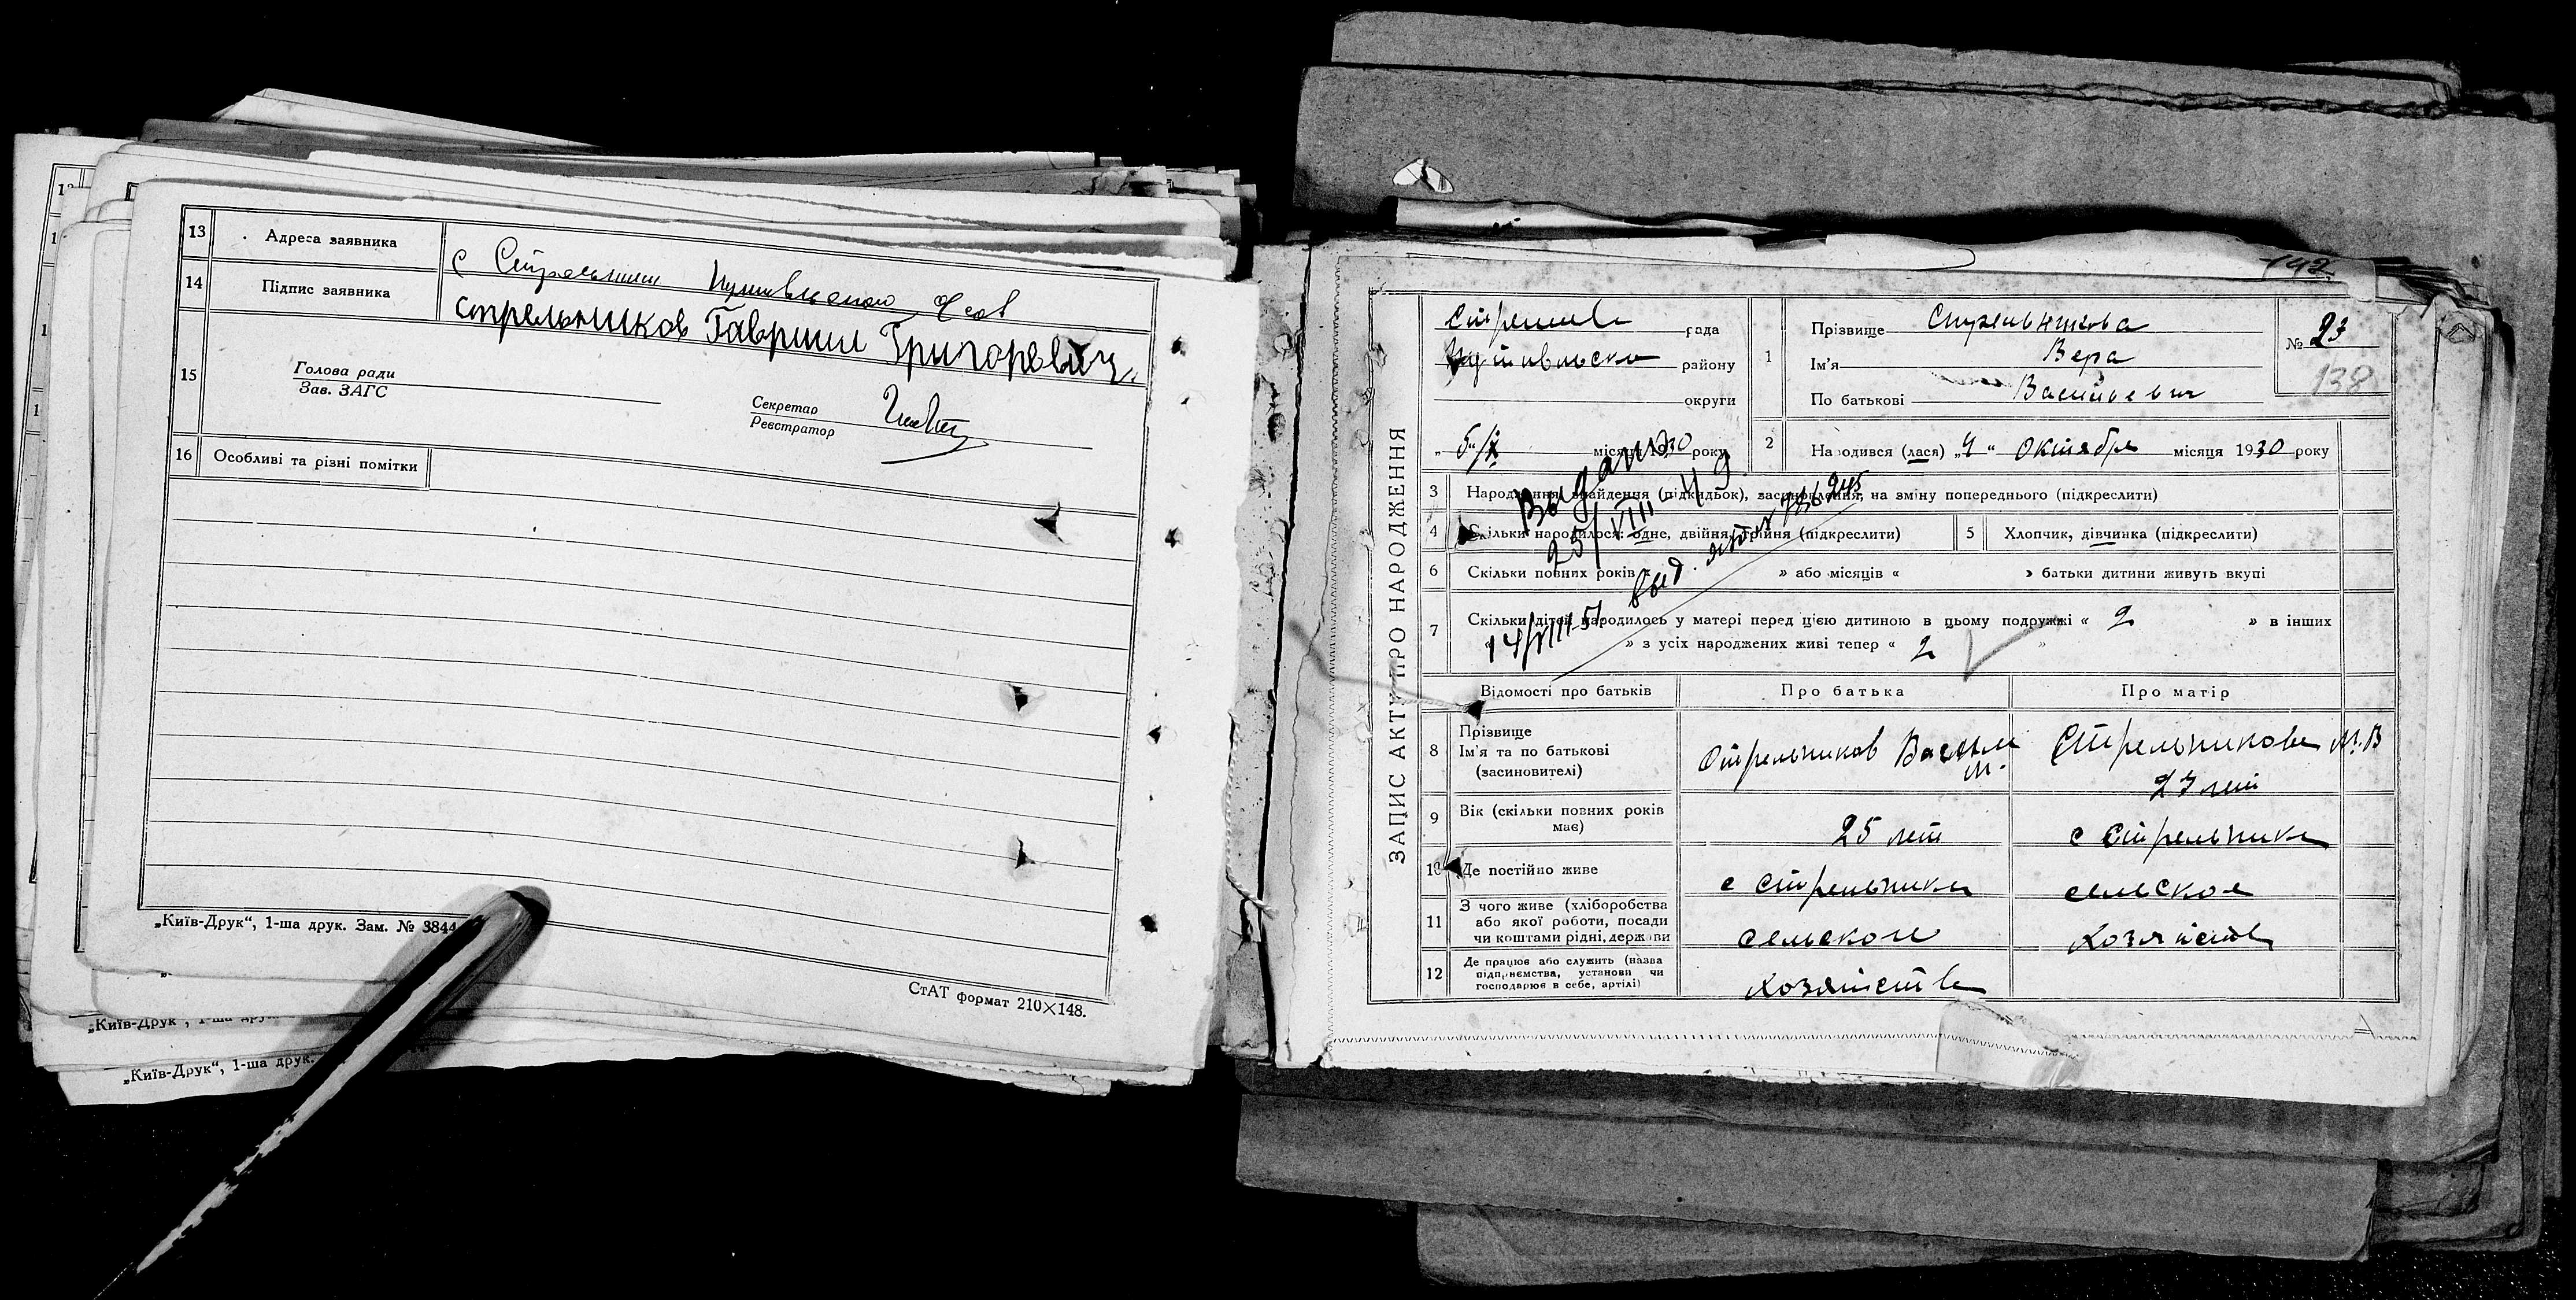 13 Адреса заявника с Стрельники Путивльского
14 Підпис заявника Стрельников Гавриил Григоревич
15 Голова ради
Зав. ЗАГС
Секретар
Реєстратор
16 Особливі та різні помітки
„Київ-Друк“, 1-ша друк. Зам. № 3844
СтАТ формат 210×148.
„Київ-Друк“, 1-ша друк.
„Київ-Друк“, 1-ша друк.
142
ЗАПИС АКТУ ПРО НАРОДЖЕННЯ
рада
району
округи
місяця 1930 року
1 Прізвище Стрельникова
Ім'я Вера
По батькові Васильевич
№ 23
138
2 Народився (лася) „4“ Октября місяця 1930 року
3 Народження, знайдення (підкидьок), засиновлення, на зміну попереднього (підкреслити)
Выдано
25/VIII 49
4 Скільки народилося: одне, двійня, трійня (підкреслити)
5 Хлопчик, дівчинка (підкреслити)
6 Скільки повних років « » або місяців « » батьки дитини живуть вкупі
7 Скільки дітей народилось у матері перед цією дитиною в цьому подружжі « 2 » в інших
« » з усіх народжених живі тепер « 2 »
14/VIII-51 выд.
Відомості про батьків
Про батька
Про матір
8 Прізвище
Ім'я та по батькові
(засиновителі)
Стрельников Васили М.
Стрельникова М.В
27 лет
9 Вік (скільки повних років має)
25 лет
с Стрельники
10 Де постійно живе
с Стрельники
сельское
11 З чого живе (хліборобства
або якої роботи, посади
чи коштами рідні, держави
сельское
хозяйство
12 Де працює або служить (назва
підприємства, установи чи
господарює в себе, артілі)
хозяйство